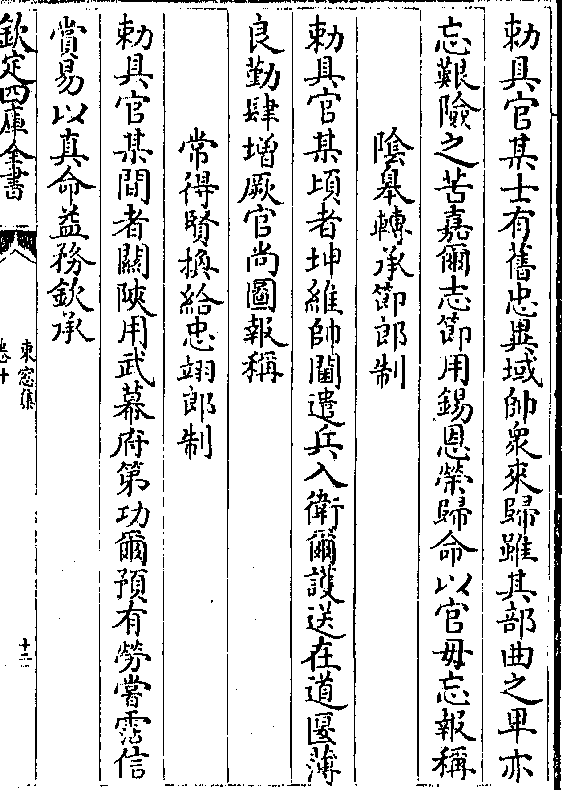 勅具官某士有舊忠異域帥衆來歸雖其部曲之卑亦
忘艱險之苦嘉爾志節用錫恩榮歸命以官毋忘報稱
陰舉轉承節郎制
勅具官某頃者坤維帥閫遣兵入衛爾護送在道匽薄
良勤肆增厥官尚圖報稱
常得賢換給忠翊郎制
勅具官某間者關陝用武幕府第功爾預有勞嘗霑信
賞易以真命益務欽承
欽定四庫全書
東窓集
卷十
十二